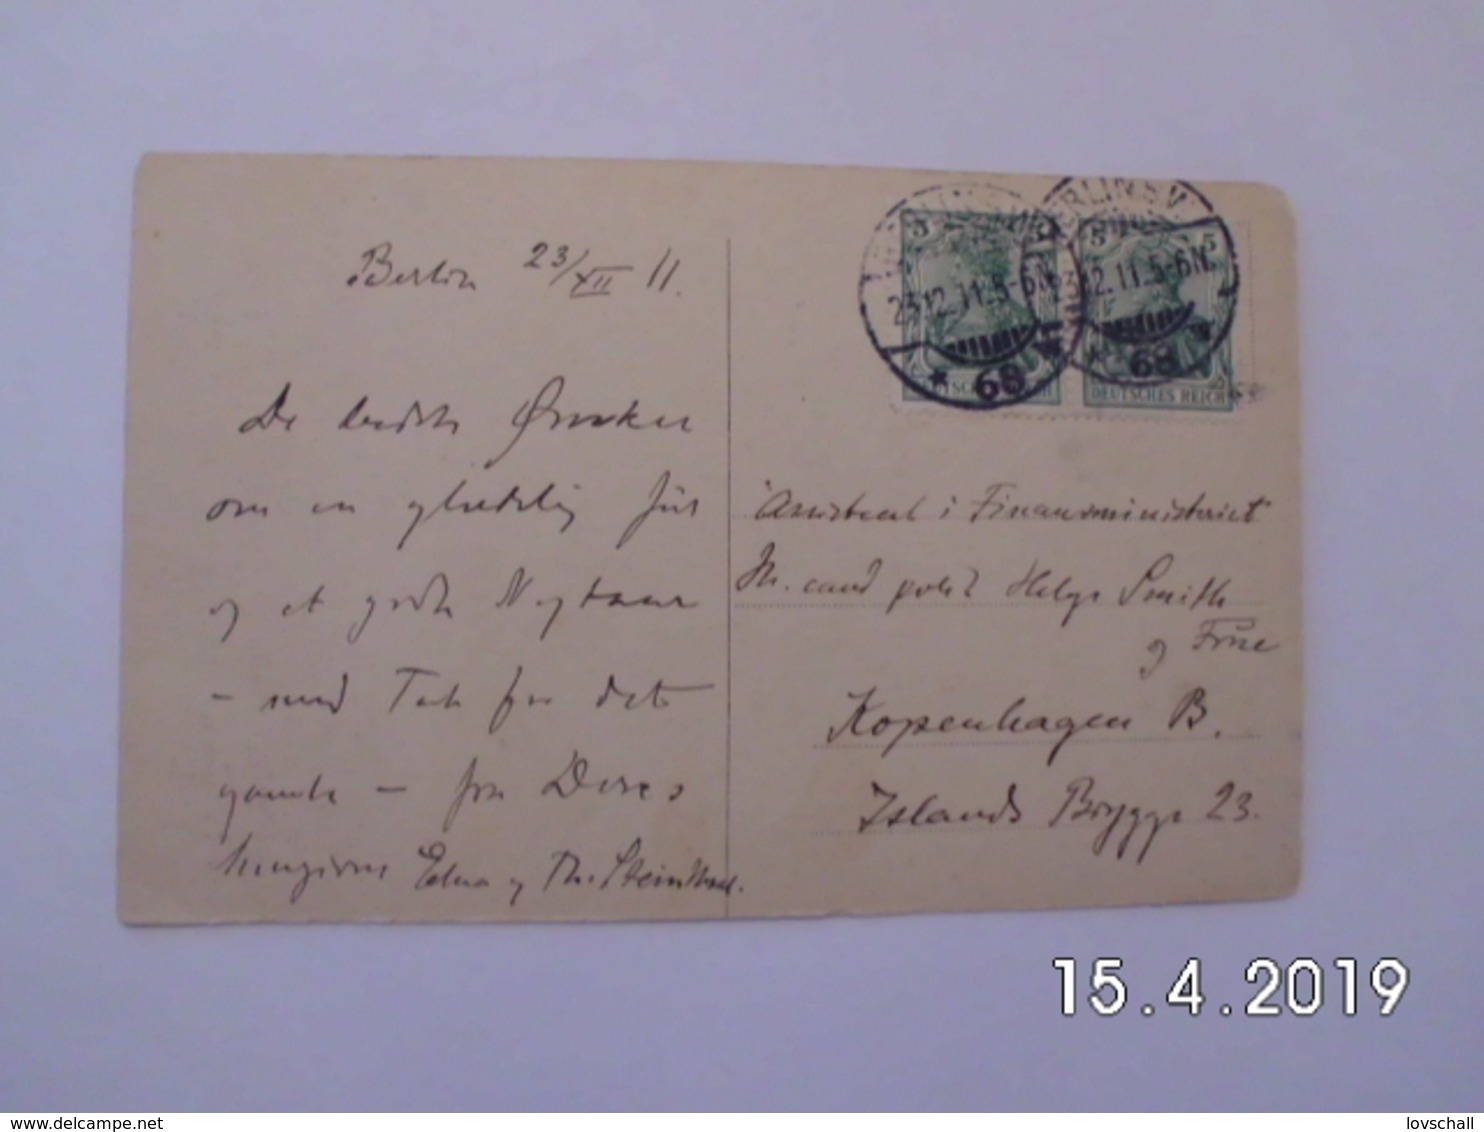 Berlin 23/XII 11.
De bedste Ønsker
om en glædelig Jul
og et godt Nytaar
- med Tak for det
gamle - fra Deres
hengivne Edna og Th. Steinthal.
BERLIN S.W.
23.12.11.5-6N.
* 68 *
BERLIN S.W.
12.11.5-6N.
* 68
5
5 5
DEUTSCHES REICH
DEUTSCHES REICH
Assistent i Finansministeriet
Hr. cand polit Helge Smith
og Frue
Kopenhagen B.
Islands Brygge 23.
15.4.2019
www.delcampe.net
lovschall